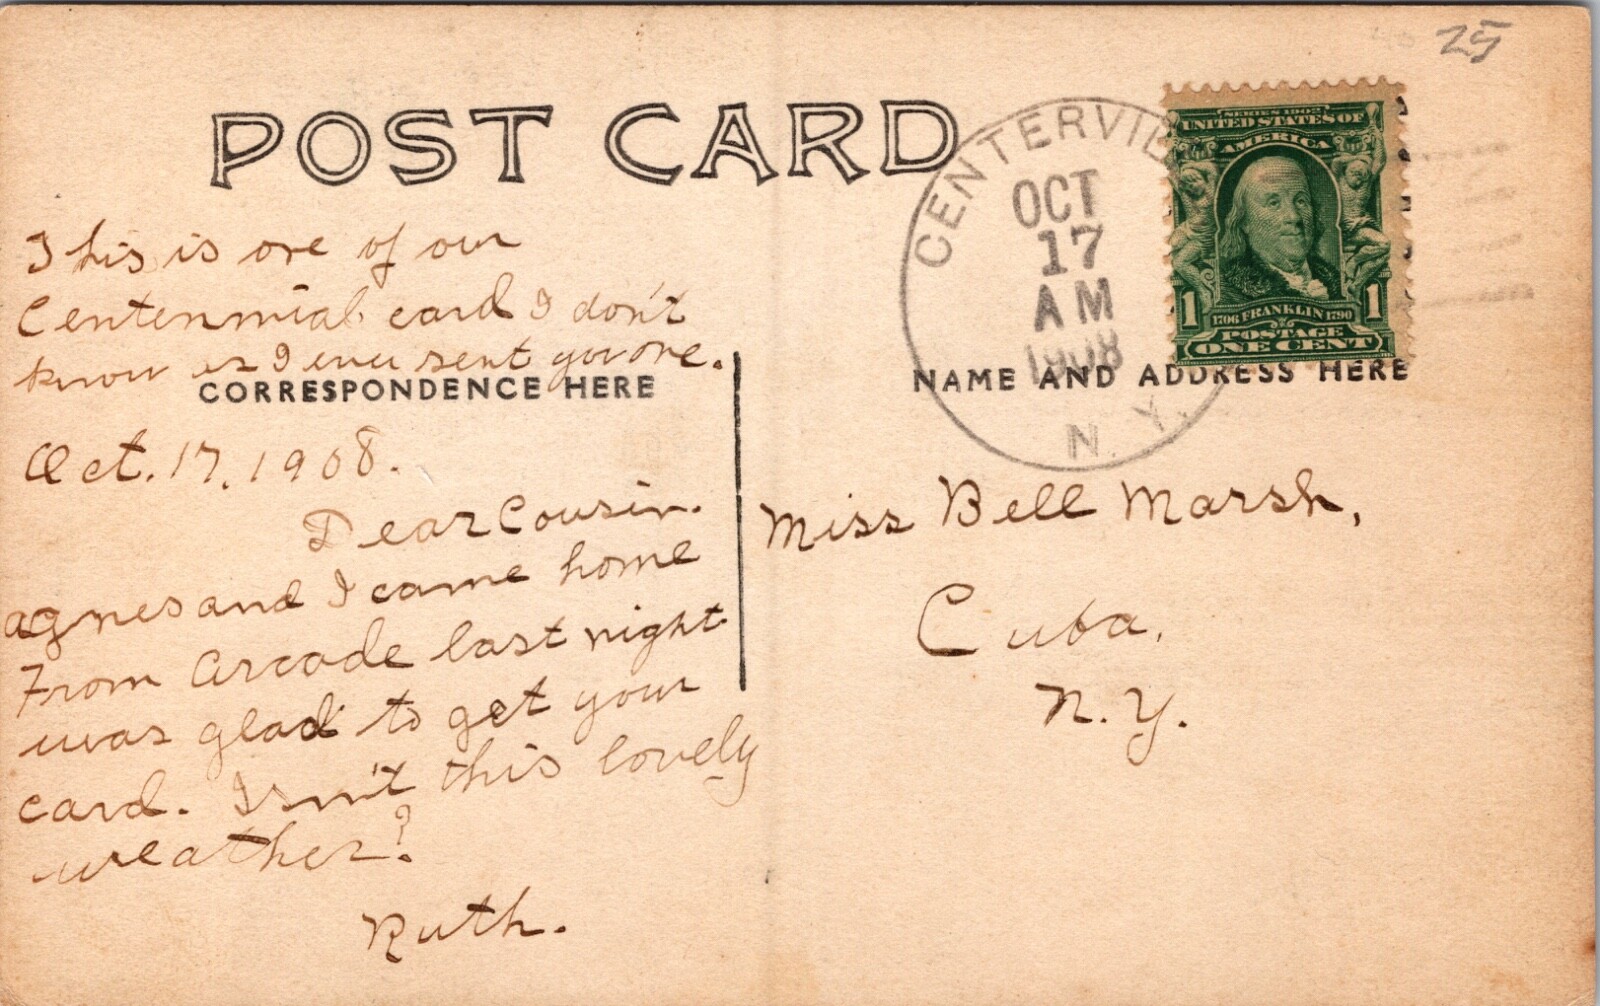 25
POST CARD
CENTERVIL
OCT
17
AM
1908
N.Y.
SERIES 1902
UNITED STATES OF
AMERICA
1 1706 FRANKLIN 1790 1
POSTAGE
ONE CENT
This is one of our
Centennial card I don't
know as I ever sent you one.
CORRESPONDENCE HERE
NAME AND ADDRESS HERE
Oct. 17, 1908.
Dear Cousin.
agnes and I came home
From Arcade last night
was glad to get your
card. Isnn't this lovely
weather?
Ruth.
Miss Bell Marsh,
Cuba,
N.Y.